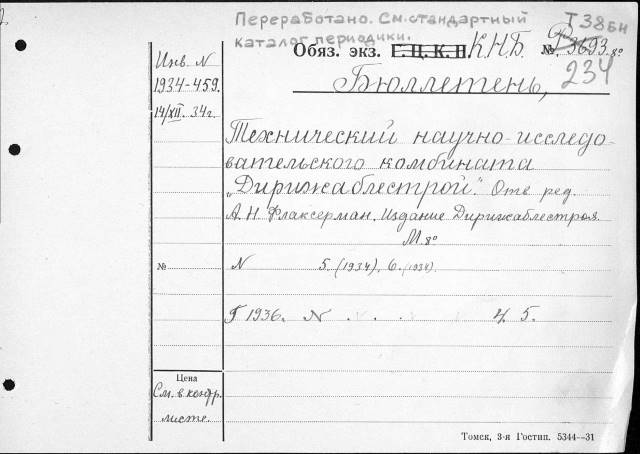 Переработано. См. стандартный
каталог периодики.
Т38бн
Обяз. экз. Г.Ц.К.П. К.Н.Б. № 3693. 8º
234
Инв. N
1934-459.
14/XII. 34г.
Бюллетень,
Технический научно-исследо-
вательского комбината
„Дирижаблестрой". Отв. ред.
А. Н. Флаксерман. Издание Дирижаблестроя.
М. 8º
№ N 5. (1934). 6. (1934).
Г 1936. N . . . 4. 5.
Цена
См. в контр.
листе.
Томск, 3-я Гостип. 5344—31